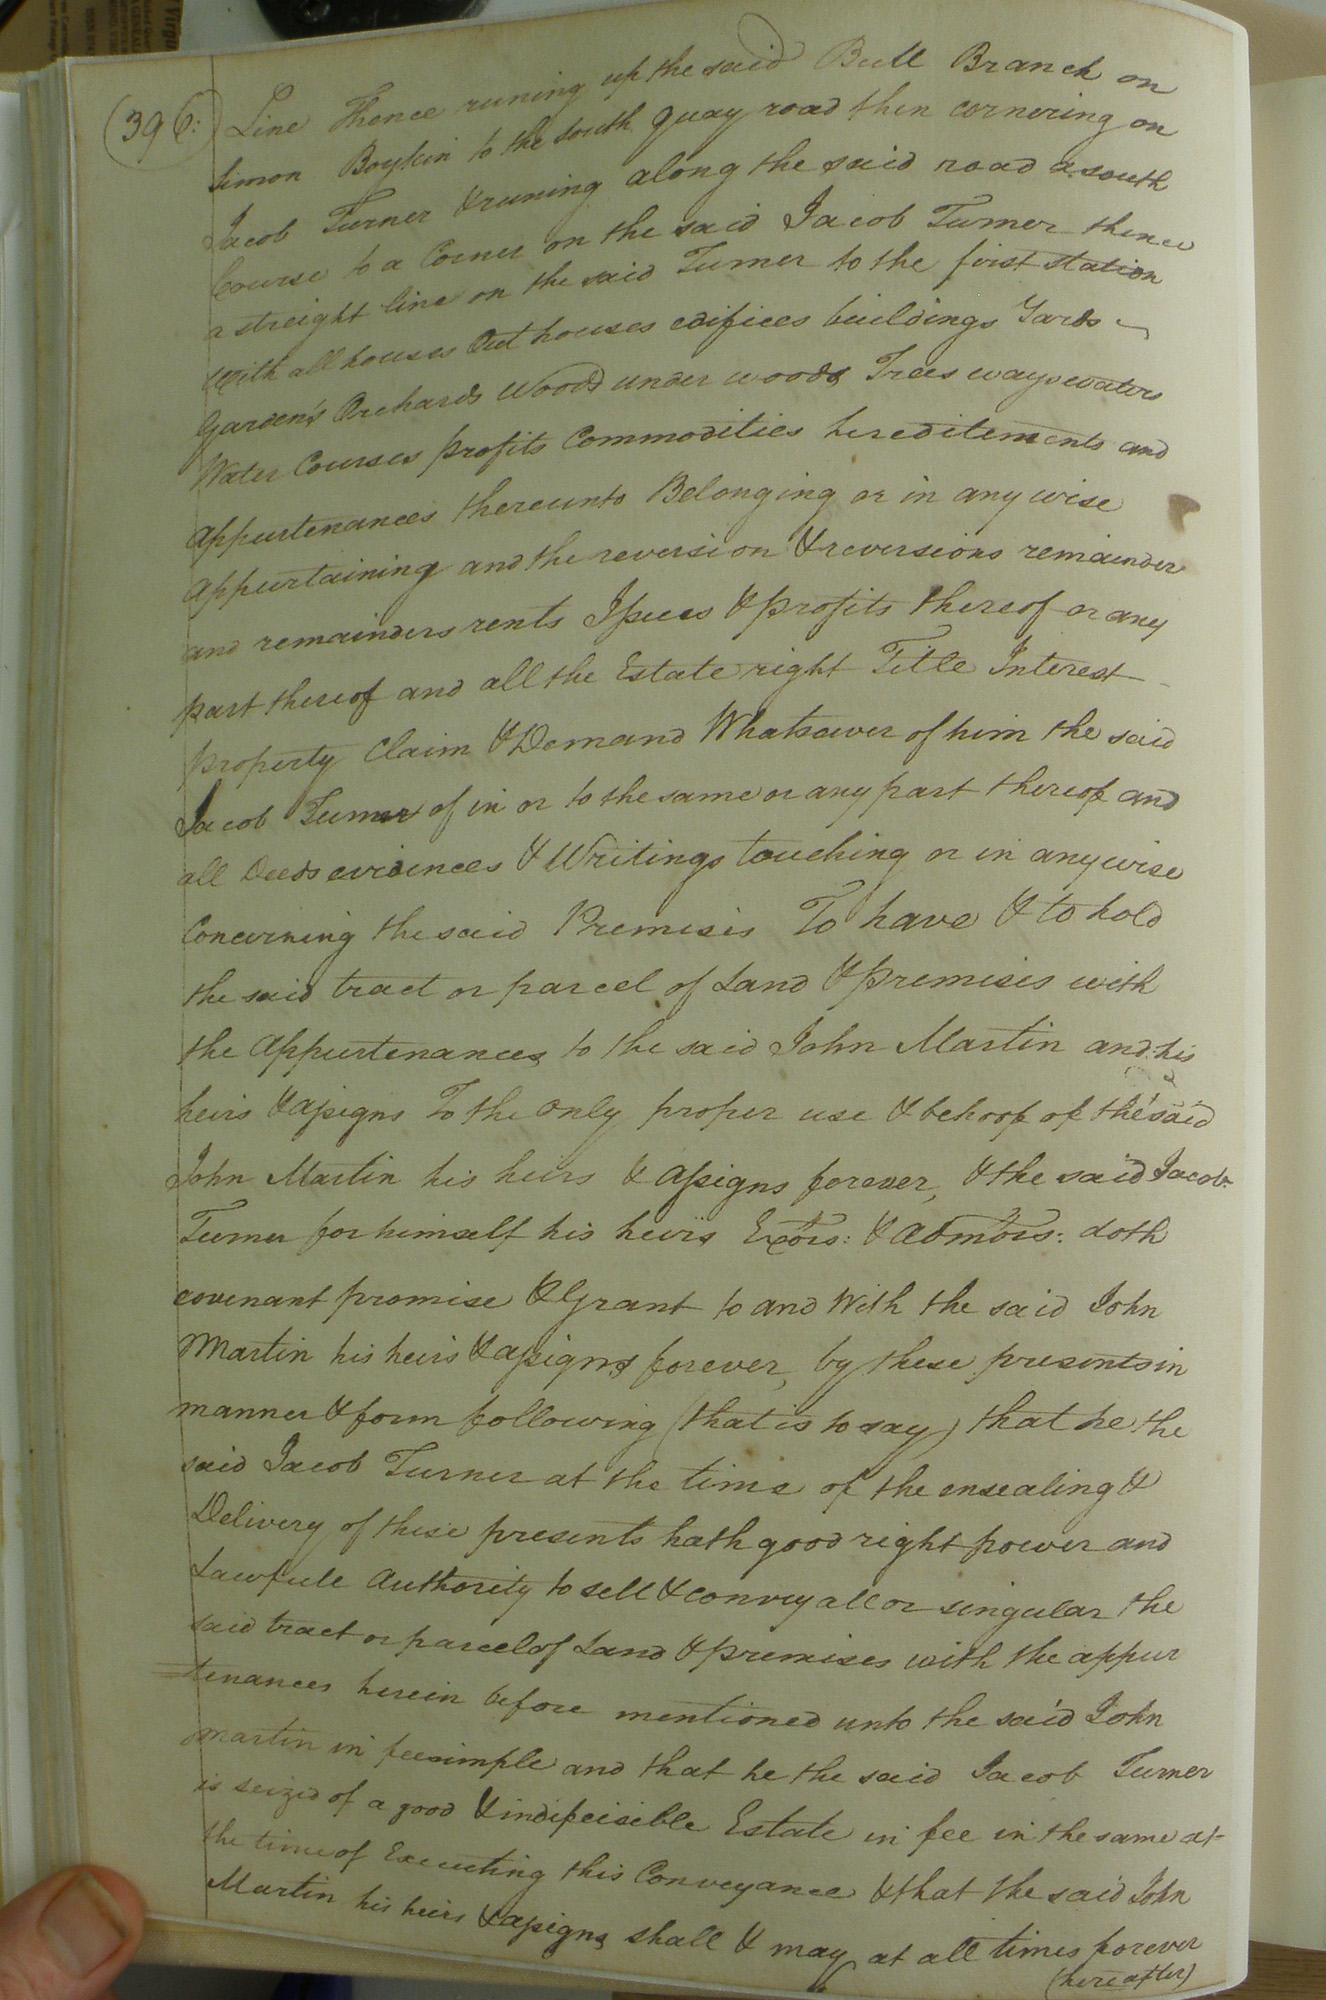 (396:) Line Thence runing up the said Bull Branch on
Simon Boykin to the South quay road then cornering on
Jacob Turner & runing along the said road a south
Course to a Corner on the said Jacob Turner thence
a streight line on the said Turner to the first station
With all houses Out houses edifices buildings Yards
Garden's Orchards Woods under woods Trees ways waters
Water Courses profits Commodities hereditements and
Appurtenances thereunto Belonging or in any wise
Appurtaining and the reversion & reversions remainder
and remainders rents Issues & profits thereof or any
part thereof and all the Estate right Title Interest
property Claim & Demand Whatsoever of him the said
Jacob Turner of in or to the same or any part thereof and
all Deeds evidences & Writings touching or in any wise
Concerning the said Premises To have & to hold
the said tract or parcel of Land & premises with
the Appurtenances to the said John Martin and his
heirs & assigns To the only proper use & behoof of the said
John Martin his heirs & assigns forever, & the said Jacob
Turner for himself his heirs Exors: & Admors: doth
covenant promise & Grant to and With the said John
Martin his heirs & assigns forever, by these presents in
manner & form following (that is to say) that he the
said Jacob Turner at the time of the ensealing &
Delivery of these presents hath good right power and
Lawfull Authority to sell & convey all or singular the
said tract or parcel of Land & premises with the appur
=tenances herein before mentioned unto the said John
Martin in fee simple and that he the said Jacob Turner
is seized of a good & indifeisible Estate in fee in the same at
the time of Executing this Conveyance & that the said John
Martin his heirs & assigns shall & may at all times forever
(hereafter)